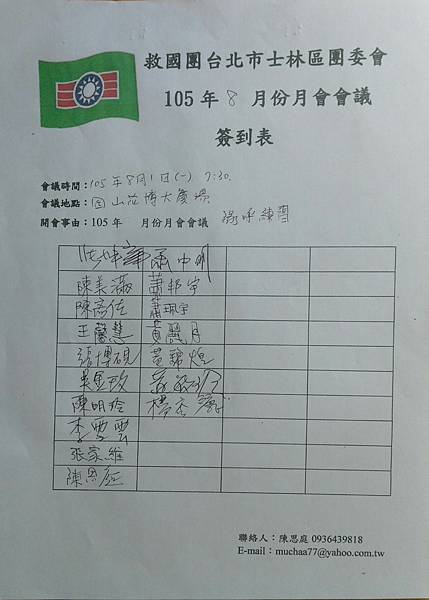 救國團台北市士林區團委會
105 年 8 月份月會會議
簽到表
會議時間：105年8月1日(一) 7:30
會議地點：圓山花博大廣場
開會事由：105 年 月份月會會議 歡呼練習
陳美滿 蕭邦宇
陳彥佐 蕭珮宇
王馨慧 黃麗月
張博硯 黃錦煌
陳明玲
李雪雲
張家維
陳思庭
聯絡人：陳思庭 0936439818
E-mail：muchaa77@yahoo.com.tw